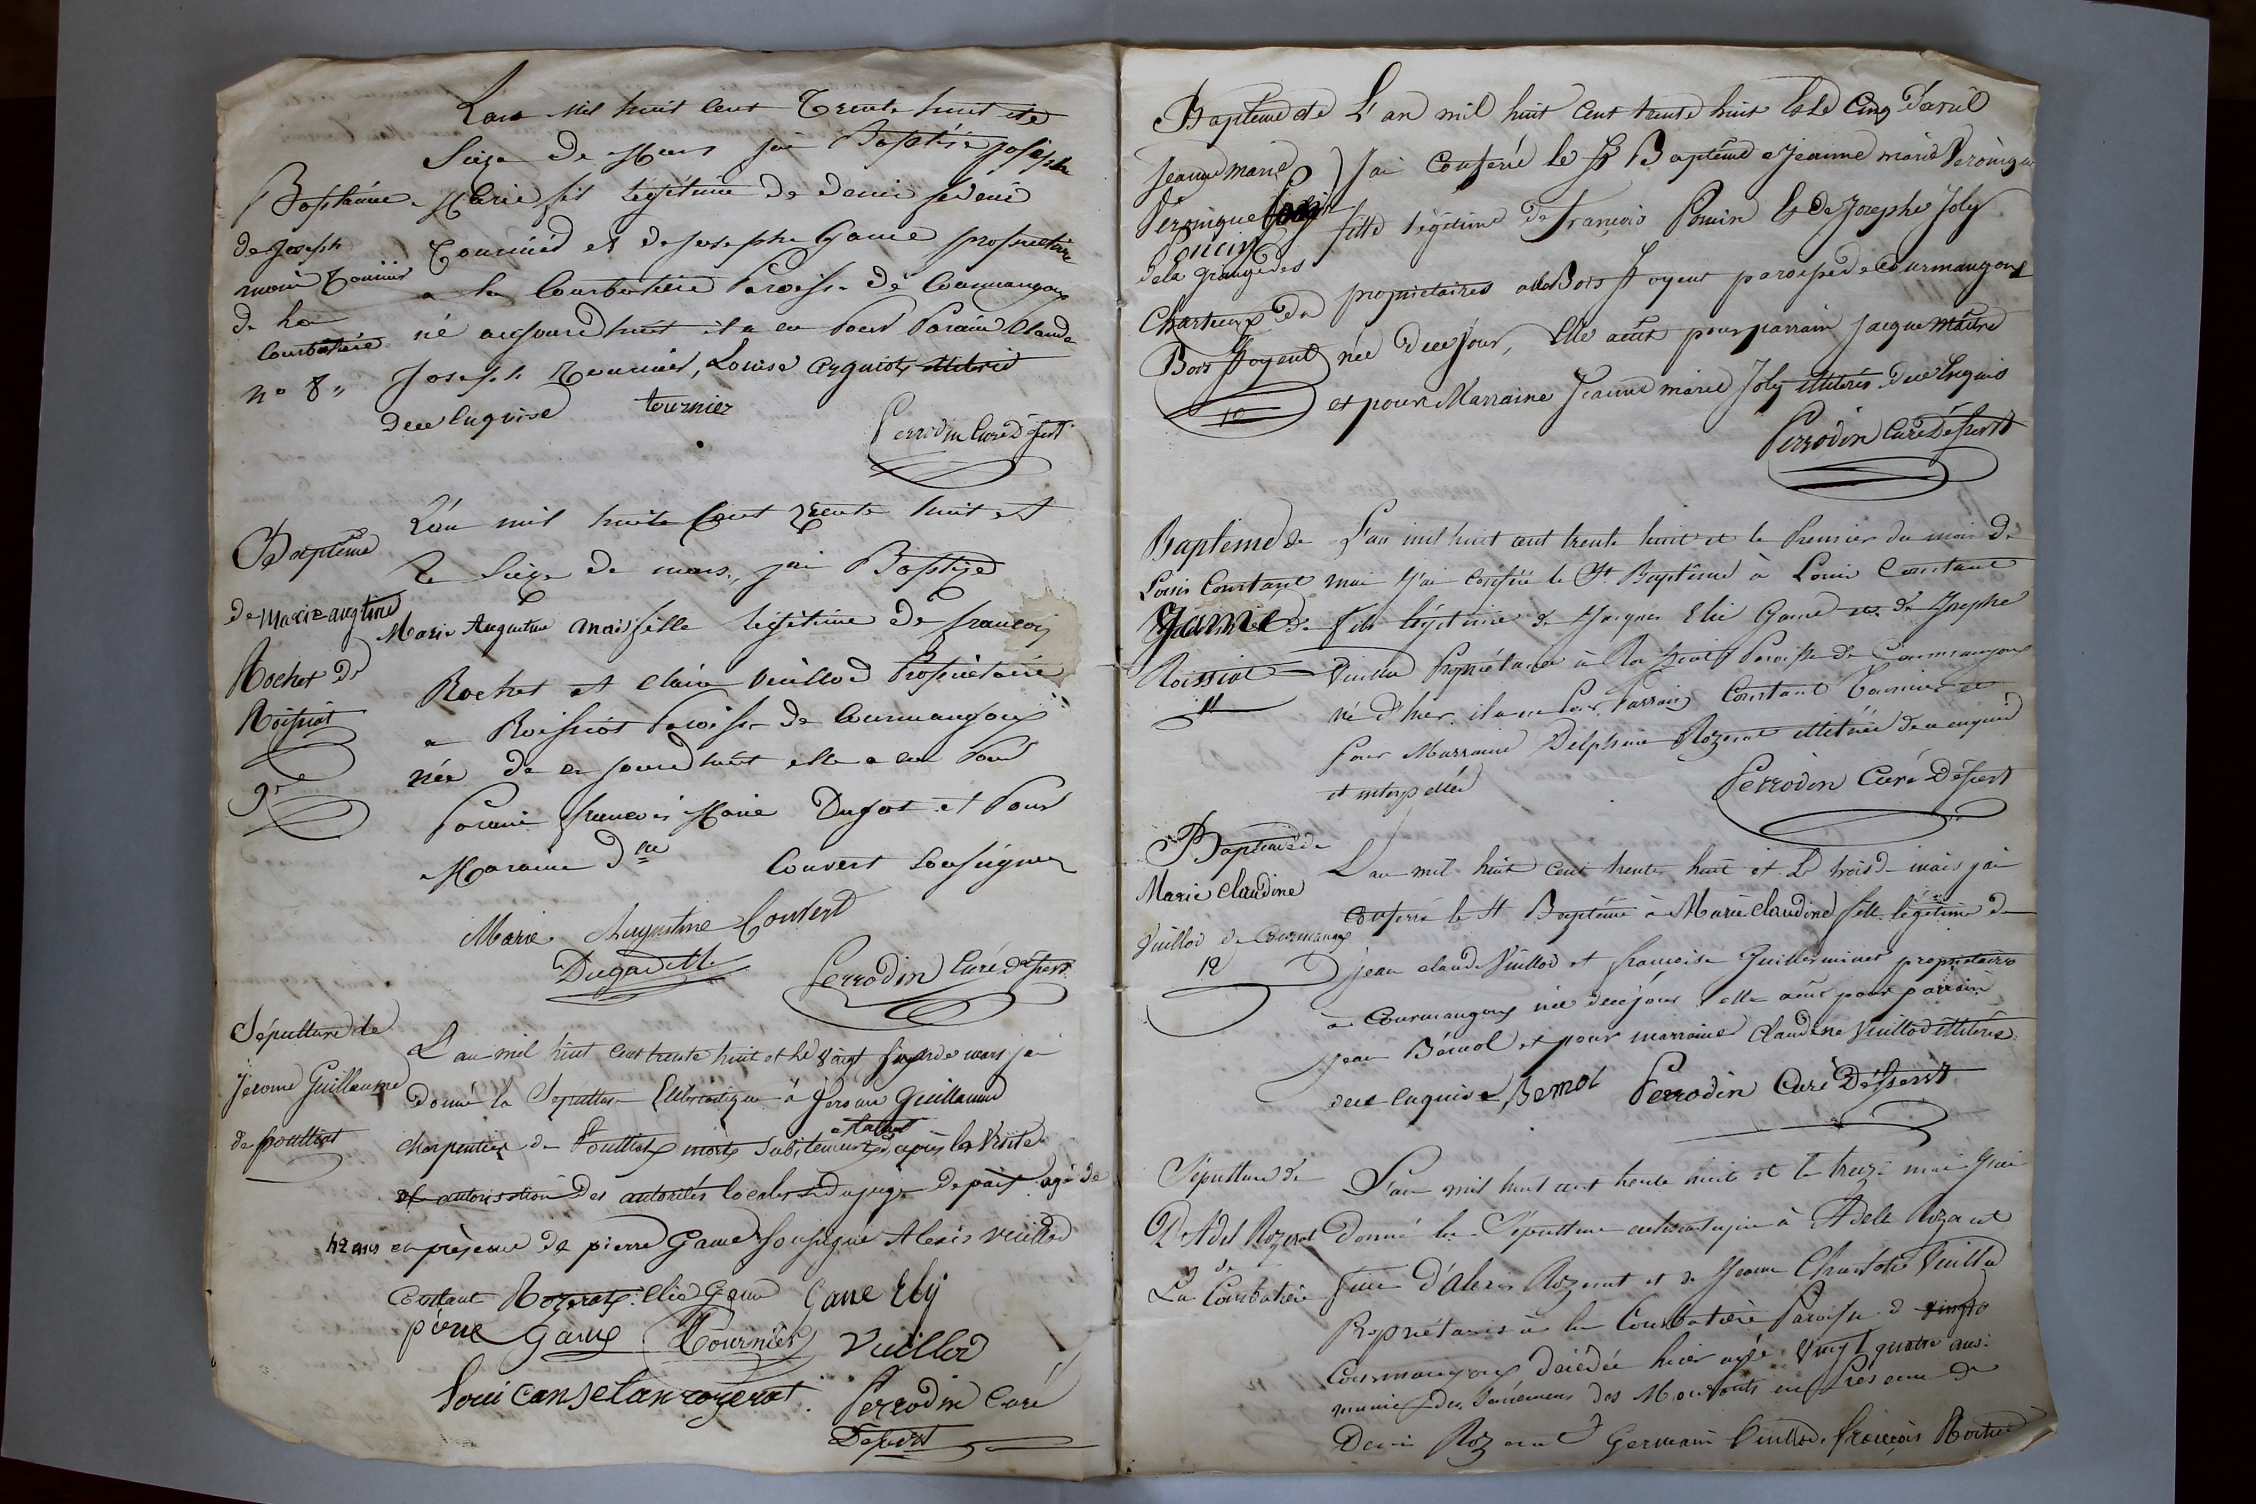 L'an mil huit cent trente huit et le
Seize de Mars j'ai Baptisé joseph
Marie fils légitime de denis fréderic
Tournier et de josephe Game propriétaire
a la Courbatière Paroisse de Courmangoux
né aujourd'huit il a eu Pour Parain Claude
Joseph Tournier, Louise illitérée
dece enquise tournier
Perrodin Curé Dessert
Baptême
de Joseph
marie Tournier
de la
Courbatière
n° 8
L'an mil huit Cent trente huit et
le Seize de mars, j'ai Baptizé
Marie Augustine anais fille légitime de francois
Rochet et Claire Vuillod Propriétaire
a Roissiat Paroisse de Courmangoux
née de ce jourd'huit elle a eu Pour
Parain francois Marie Dugas et Pour
Maraine Dlle Couvert Sousigner
Marie Augustine Couvert
Perrodin Curé Dessert
Baptême
de Marie augtine
Rochet de
Roissiat
9
Sépulture de
jerome Guillaume
de poulliat
L'an mil huit Cent trente huit et le vingt six de mars j'ai
donné la Sepulture Ecclésiastique à Jerome Guillaume
charpentier de Poulliat mort Subitement et après la Visite
et autorisation Des autorités locales et du juge de paix agé de
42 ans en présence de pierre Game Sousigné Alexis Vuillod
Constant Rozerat. Elie Game Game Ely
piere Game Tournier Vuillod
Loui Canstan rozerat. Perrodin Curé
Dessert
Baptême de
jeanne marie
Véronique
Poncin
de la Grange des
Chartreux du
Bois foyent
10
L'an mil huit Cent trente huit et Le Cinq D'avril
J'ai Conferé le St Baptême a Jeanne marie Véronique
fille légitime de francois Poncin et de Josephe Joly
propriétaires au Bois foyent paroisse de Courmangoux
née de ce jour, Elle a eut pour parrain jacque Maitre
et pour Marraine Jeanne marie Joly illitérés dece Enquis
Perrodin Curé Dessert
Baptême de
Louis Constant
Game de
Roissiat
11
L'an mil huit cent trente huit et le Premier du mois de
mai J'ai conféré le St Baptême à Louis Constant
fils légitime de Jacques Elie Game et de Josephe
Vuillod Propriétaires à Roissiat Paroisse de Courmangoux
né d'hier, il a eu Pour Parrain Constant Tournier et
Pour Marraine Delphine Rozerat illitérée de ce enquis
et interpellée
Perrodin Curé Dessert
Baptême de
Marie Claudine
Vuillod de Courmangoux
12
L'an mil huit Cent trente huit et Le trois de mai j'ai
Conferré le St Baptême à Marie Claudine fille légitime de
jean claude Vuillod et francoise Guillerminet propriétaires
à Courmangoux née de ce jour elle a eut pour parrain
jean Bémol et pour marraine Claudine Vuillod illitérée
dece enquise Bemol Perrodin Curé Dessert
Sépulture de
D'Adel Rozerat
de
La Courbatière
L'an mil huit cent trente huit et le treize mai J'ai
donné la Sépulture eclésiastique à Adele Rozerat
fille d'Alexis Rozerat et de Jeanne Charlotte Vuillod
Propriétaires à la Courbatière Paroisse d
Courmangoux décédée hier agée Vingt quatre ans.
munie des Sacremens des Mourants en Présence de
Denis Rozerat Germain Vuillod, francois Rochet